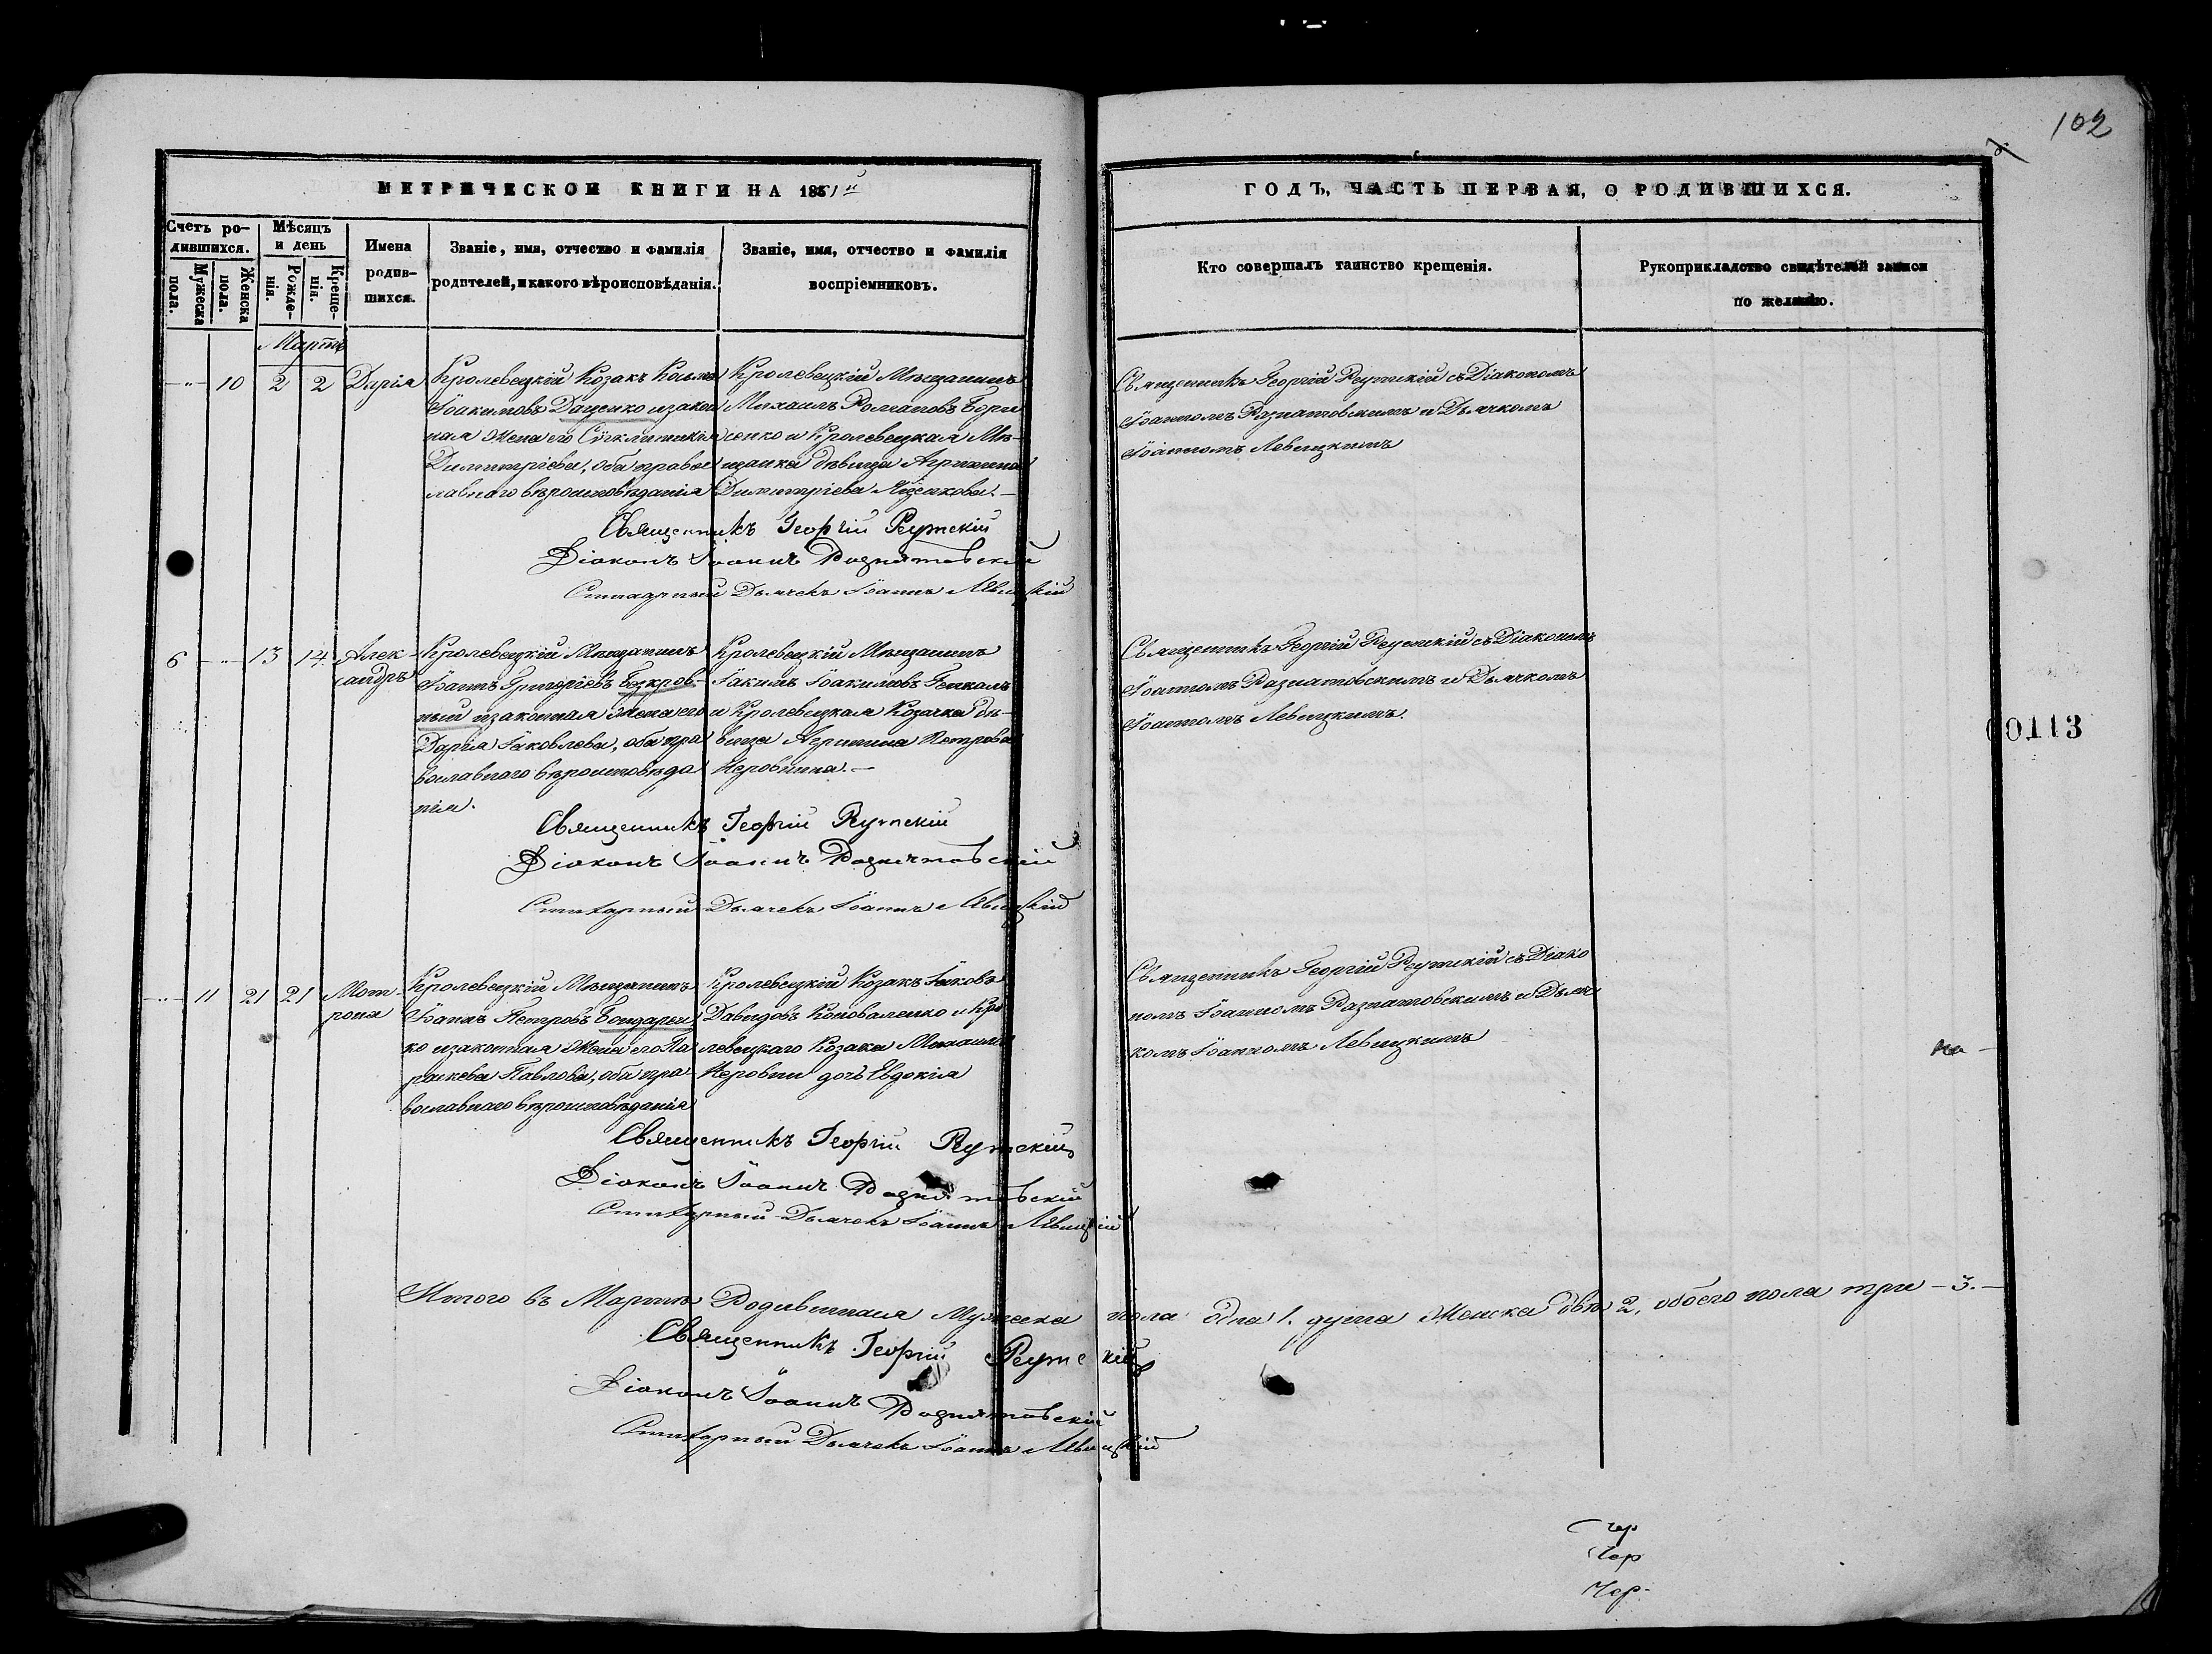 102
МЕТРИЧЕСКОЙ КНИГИ НА 1851й
ГОДЪ, ЧАСТЬ ПЕРВАЯ, О РОДИВШИХСЯ.
Счетъ ро-
дившихся.
Мужеска
пола.
Женска
пола.
Мѣсяцъ
и день
Рожде-
нія.
Креще-
нія.
Имена
родив-
шихся.
Званіе, имя, отчество и фамилія
родителей, и какого вѣроисповѣданія.
Званіе, имя, отчество и фамилія
воспріемниковъ.
Кто совершалъ таинство крещенія.
Рукоприкладство свидѣтелей записи
по желанію.
Мартъ
10 2 2 Дарія
Кролевецкій Козакъ Козьма
Іоакимовъ Даценко и закон
ная жена его Сѵнклитикія
Димитріева, оба правос
лавнаго вѣроисповѣданія
Кролевецкій Мѣщанинъ
Михаилъ Романовъ Бори
сенко и Кролевецкая Мѣ-
щанка дѣвица Агрипина
Димитріева
Священникъ Георгій Реутскій съ Діакономъ
Іоанномъ Разнатовскимъ и Дьячкомъ
Іоанномъ Левицкимъ
Священникъ Георгій Реутскій
Діаконъ Іоаннъ Разнатовскій
Стихарный Дьячекъ Іоаннъ Левицкій
6 13 14 Алек-
сандръ
Кролевецкій Мѣщанинъ
Іоаннъ Григоріевъ Безкров-
ный и законная жена его
Дарія Іаковлева, оба пра
вославнаго вѣроисповѣда
нія.
Кролевецкій Мѣщанинъ
Іакимъ Іоакимовъ
и Кролевецкая Козачка дѣ-
вица Агрипина Петрова
Неровнина.
Священникъ Георгій Реутскій съ Діакономъ
Іоанномъ Разнатовскимъ и Дьячкомъ
Іоанномъ Левицкимъ.
Священникъ Георгій Реутскій
Діаконъ Іоаннъ Разнатовскій
Стихарный Дьячекъ Іоаннъ Левицкій
00113
11 21 21 Мот-
рона
Кролевецкій Мѣщанинъ
Іоаннъ Петровъ Бондарен-
ко и законная жена его Па
раскева Павлова, оба пра-
вославнаго вѣроисповѣданія
Кролевецкій Козакъ Іаковъ
Давидовъ Коноваленко и Кро
левецкаго Козака Михаила
Неровни дочь Евдокія
Священникъ Георгій Реутскій съ Діако
номъ Іоанномъ Разнатовскимъ и Дьяч
комъ Іоанномъ Левицкимъ
на
Священникъ Георгій Реутскій
Діаконъ Іоаннъ Разнатовскій
Стихарный Дьячекъ Іоаннъ Левицкій
Итого въ Мартѣ Родившихся Мужеска пола одна 1. душа Женска двѣ 2, обоего пола три - 3. -
Священникъ Георгій Реутскій
Діаконъ Іоаннъ Разнатовскій
Стихарный Дьячекъ Іоаннъ Левицкій
Чер
Чер
Чер